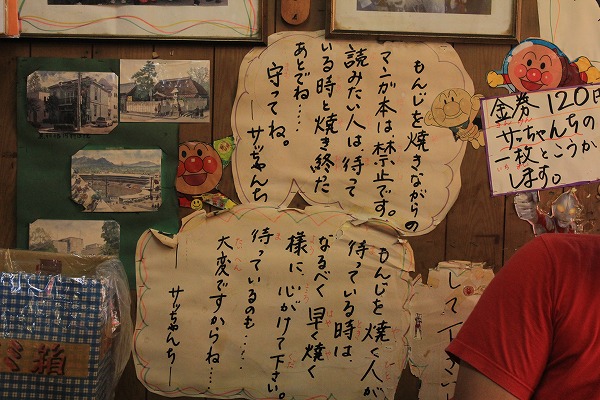 もんじを焼きながらの
マンガ本は禁止です。
読みたい人は待て
いる時と焼き終た
あとでね…
守ってね。
ーサッちゃんち
もんじを焼く人が
待っている時は
なるべく早く焼く
様に、心がけて下さい。
待っているのも…
大変ですからね…
ー サッちゃんちー
金券 120円
サッちゃんちの
一枚とこうか
します。
して下さい
ミ箱